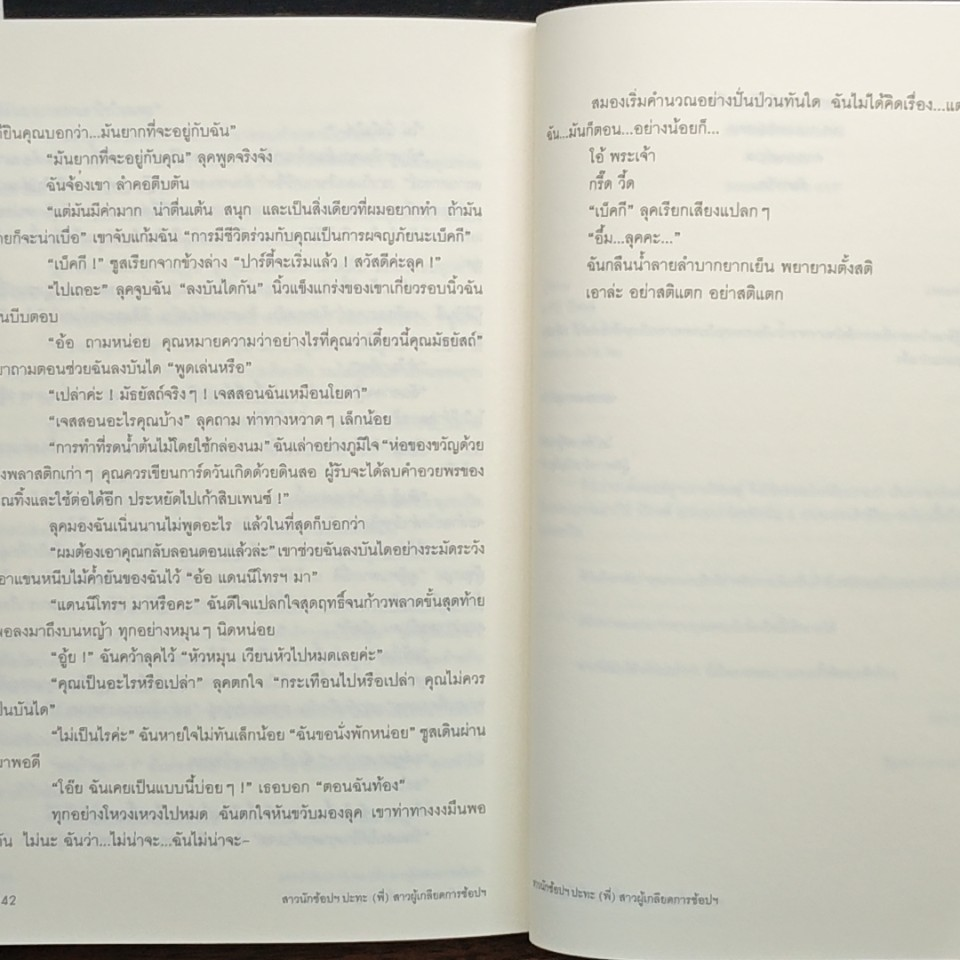 คุณบอกว่า...มันยากที่จะอยู่กับฉัน”
“มันยากที่จะอยู่กับคุณ” ลุคพูดจริงจัง
ฉันจ้องเขา ลำคอตีบตัน
“แต่มันมีค่ามาก น่าตื่นเต้น สนุก และเป็นสิ่งเดียวที่ผมอยากทำ ถ้ามัน
ก็จะน่าเบื่อ” เขาจับแก้มฉัน “การมีชีวิตร่วมกับคุณเป็นการผจญภัยนะเบ็คกี”
“เบ็คกี !” ซูสเรียกจากข้างล่าง “ปาร์ตี้จะเริ่มแล้ว ! สวัสดีค่ะลุค !”
“ไปเถอะ” ลุคจูบฉัน “ลงบันไดกัน” นิ้วแข็งแกร่งของเขาเกี่ยวรอบนิ้วฉัน
บีบตอบ
“อ้อ ถามหน่อย คุณหมายความว่าอย่างไรที่คุณว่าเดี๋ยวนี้คุณมัธยัสถ์”
ถามตอนช่วยฉันลงบันได “พูดเล่นหรือ”
“เปล่าค่ะ ! มัธยัสถ์จริงๆ ! เจสสอนฉันเหมือนโยดา”
“เจสสอนอะไรคุณบ้าง” ลุคถาม ท่าทางหวาดๆ เล็กน้อย
“การทำที่รดน้ำต้นไม้โดยใช้กล่องนม” ฉันเล่าอย่างภูมิใจ “ห่อของขวัญด้วย
พลาสติกเก่าๆ คุณควรเขียนการ์ดวันเกิดด้วยดินสอ ผู้รับจะได้ลบคำอวยพรของ
ทิ้งและใช้ต่อได้อีก ประหยัดไปเก้าสิบเพนซ์ !”
ลุคมองฉันเนิ่นนานไม่พูดอะไร แล้วในที่สุดก็บอกว่า
“ผมต้องเอาคุณกลับลอนดอนแล้วล่ะ” เขาช่วยฉันลงบันไดอย่างระมัดระวัง
แขนหนีบไม้ค้ำยันของฉันไว้ “อ้อ แดนนีโทรฯ มา”
“แดนนีโทรฯ มาหรือคะ” ฉันดีใจแปลกใจสุดฤทธิ์จนก้าวพลาดขั้นสุดท้าย
ลงมาถึงบนหญ้า ทุกอย่างหมุนๆ นิดหน่อย
“อู้ย !” ฉันคว้าลุคไว้ “หัวหมุน เวียนหัวไปหมดเลยค่ะ”
“คุณเป็นอะไรหรือเปล่า” ลุคตกใจ “กระเทือนไปหรือเปล่า คุณไม่ควร
บันได”
“ไม่เป็นไรค่ะ” ฉันหายใจไม่ทันเล็กน้อย “ฉันขอนั่งพักหน่อย” ซูสเดินผ่าน
พอดี
“โอ๊ย ฉันเคยเป็นแบบนี้บ่อยๆ !” เธอบอก “ตอนฉันท้อง”
ทุกอย่างโหวงเหวงไปหมด ฉันตกใจหันขวับมองลุค เขาท่าทางงงมึนพอ
ไม่นะ ฉันว่า...ไม่น่าจะ...ฉันไม่น่าจะ–
42
สาวนักช้อปฯ ปะทะ (พี่) สาวผู้เกลียดการช้อปฯ
สมองเริ่มคำนวณอย่างปั่นป่วนทันใด ฉันไม่ได้คิดเรื่อง...
ฉัน...มันก็ตอน...อย่างน้อยก็...
โอ้ พระเจ้า
กรี๊ด วี้ด
“เบ็คกี” ลุคเรียกเสียงแปลกๆ
“อึ้ม...ลุคคะ...”
ฉันกลืนน้ำลายลำบากยากเย็น พยายามตั้งสติ
เอาล่ะ อย่าสติแตก อย่าสติแตก
สาวนักช้อปฯ ปะทะ (พี่) สาวผู้เกลียดการช้อปฯ